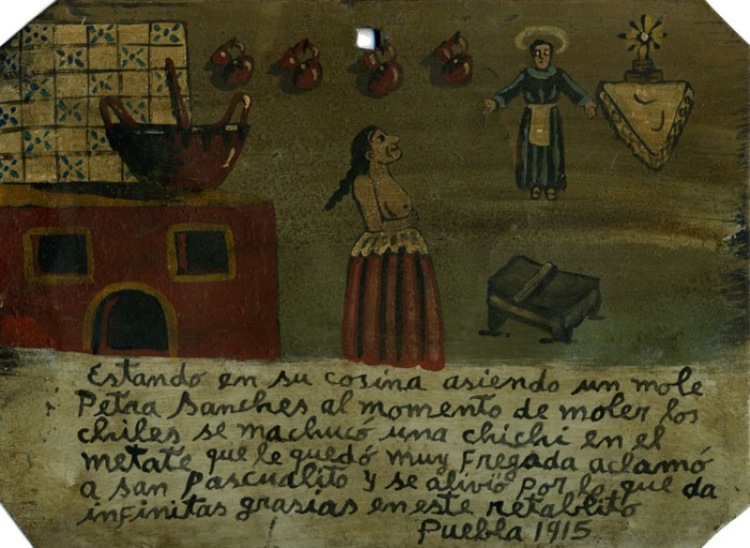 Estando en su cosina asiendo un mole
Petra Sanches al momento de moler los
chiles se machucó una chichi en el
metate que le quedó muy fregada aclamó
a San Pascualito y se alivio por lo que da
infinitas grasias en este retablito
Puebla 1915